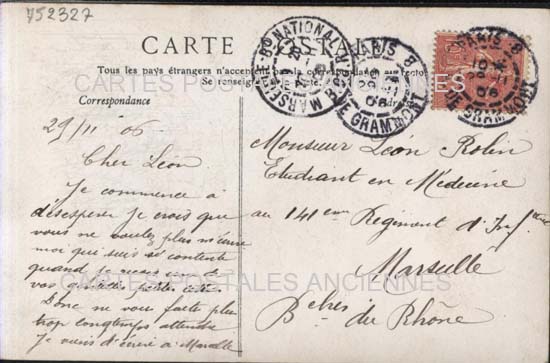 752327
CARTE POSTALE
Tous les pays étrangers n'acceptent pas la correspondance au recto
Se renseigner
Correspondance
Adresse
CARTES POSTALES
PARIS 8
RUE GRAMMONT
MARSEILLE Pce NATIONALE
29/11 06
Cher Leon
Je commence à
désespérer je crois que
vous ne voulez plus m'écrire
moi qui suis si contente
quand je reçois
vos petites
Donc ne vous faite plus
trop longtemps attendre
Je viens d'écrire à Marcelle
Monsieur Léon Robin
Etudiant en Medecine
au 141 eme Régiment d'Inftie
Marseille
Bches du Rhône
CARTES POSTALES ANCIENNES